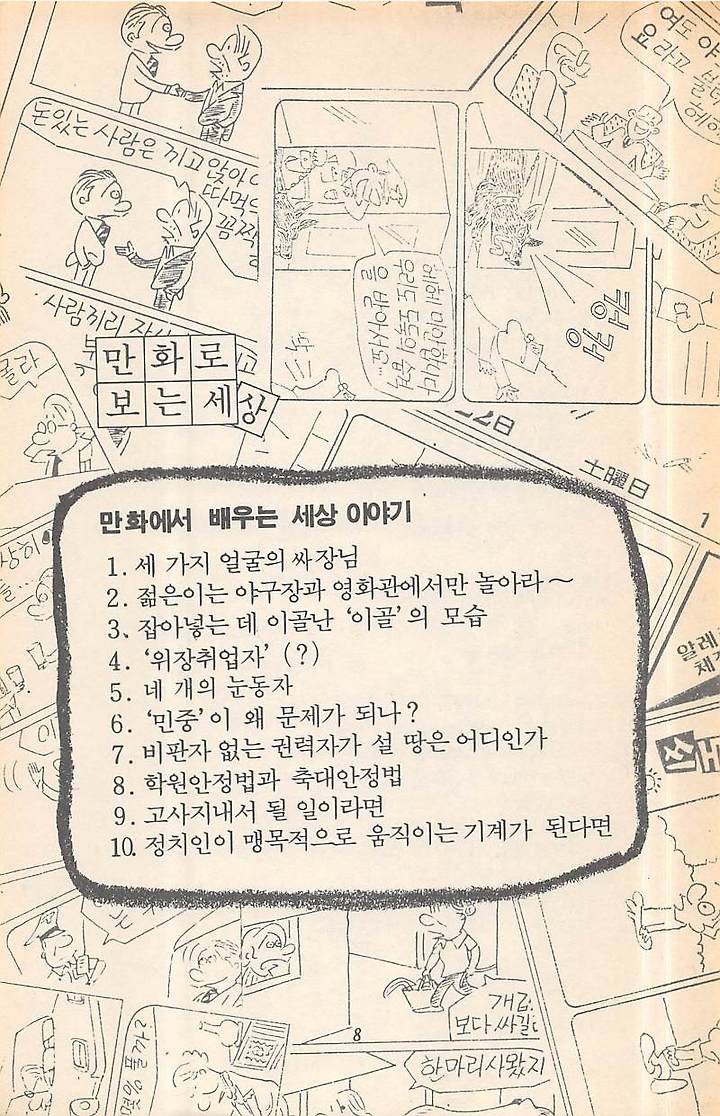 여도 야
요라고
돈있는 사람은 끼고 앉아
따먹
꼼짝
헤헤 미안합니다
우리도 도둑의 습격
을 받아서요…
컹컹
사람끼리
만화로
보는세상
몰라
日曜土
1
만화에서 배우는 세상 이야기
1. 세 가지 얼굴의 싸장님
2. 젊은이는 야구장과 영화관에서만 놀아라~
3. 잡아넣는 데 이골난 '이골'의 모습
4. '위장취업자' (?)
5. 네 개의 눈동자
6. '민중'이 왜 문제가 되나?
7. 비판자 없는 권력자가 설 땅은 어디인가
8. 학원안정법과 축대안정법
9. 고사지내서 될 일이라면
10. 정치인이 맹목적으로 움직이는 기계가 된다면
알레
체
개값
보다.싸길
8
한마리사왔지